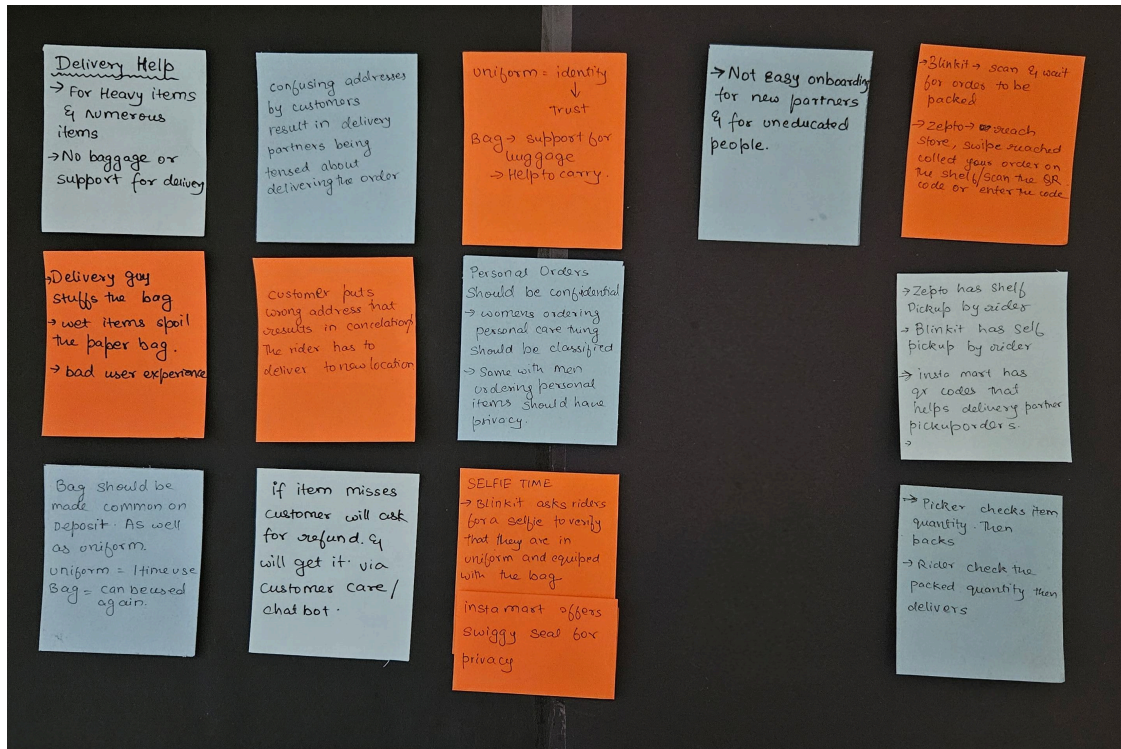 Delivery Help
→ For Heavy items
& Numerous
items
→ No baggage or
support for delivery
confusing addresses
by customers
result in delivery
partners being
tensed about
delivering the order
uniform = identity
↓
Trust
Bag → support for
luggage
→ Help to carry.
→ Not easy onboarding
for new partners
& for uneducated
people.
→ Blinkit → scan & wait
for order to be
packed
→ Zepto → reach
store, swipe reached
colled your order on
the shelf/scan the QR
code or enter the code
→ Delivery guy
stuffs the bag
→ wet items spoil
the paper bag.
→ bad user experience
customer puts
wrong address that
results in cancelation/
The rider has to
deliver to new location
Personal Orders
should be confidential
→ womens ordering
personal care tung
should be classified
→ Same with men
ordering personal
items should have
privacy.
→ Zepto has shelf
Pickup by rider
→ Blinkit has self
pickup by rider
→ insta mart has
qr codes that
helps delivery partner
pickup orders.
→
Bag should be
made common on
Deposit. As well
as uniform.
uniform = 1 time use
Bag = can be used
again.
if item misses
customer will ask
for refund. &
will get it. via
customer care/
chat bot.
SELFIE TIME
→ Blinkit asks riders
for a selfie to verify
that they are in
uniform and equiped
with the bag
insta mart offers
swiggy seal for
privacy
→ Picker checks item
quantity. Then
packs
→ Rider check the
packed quantity then
delivers